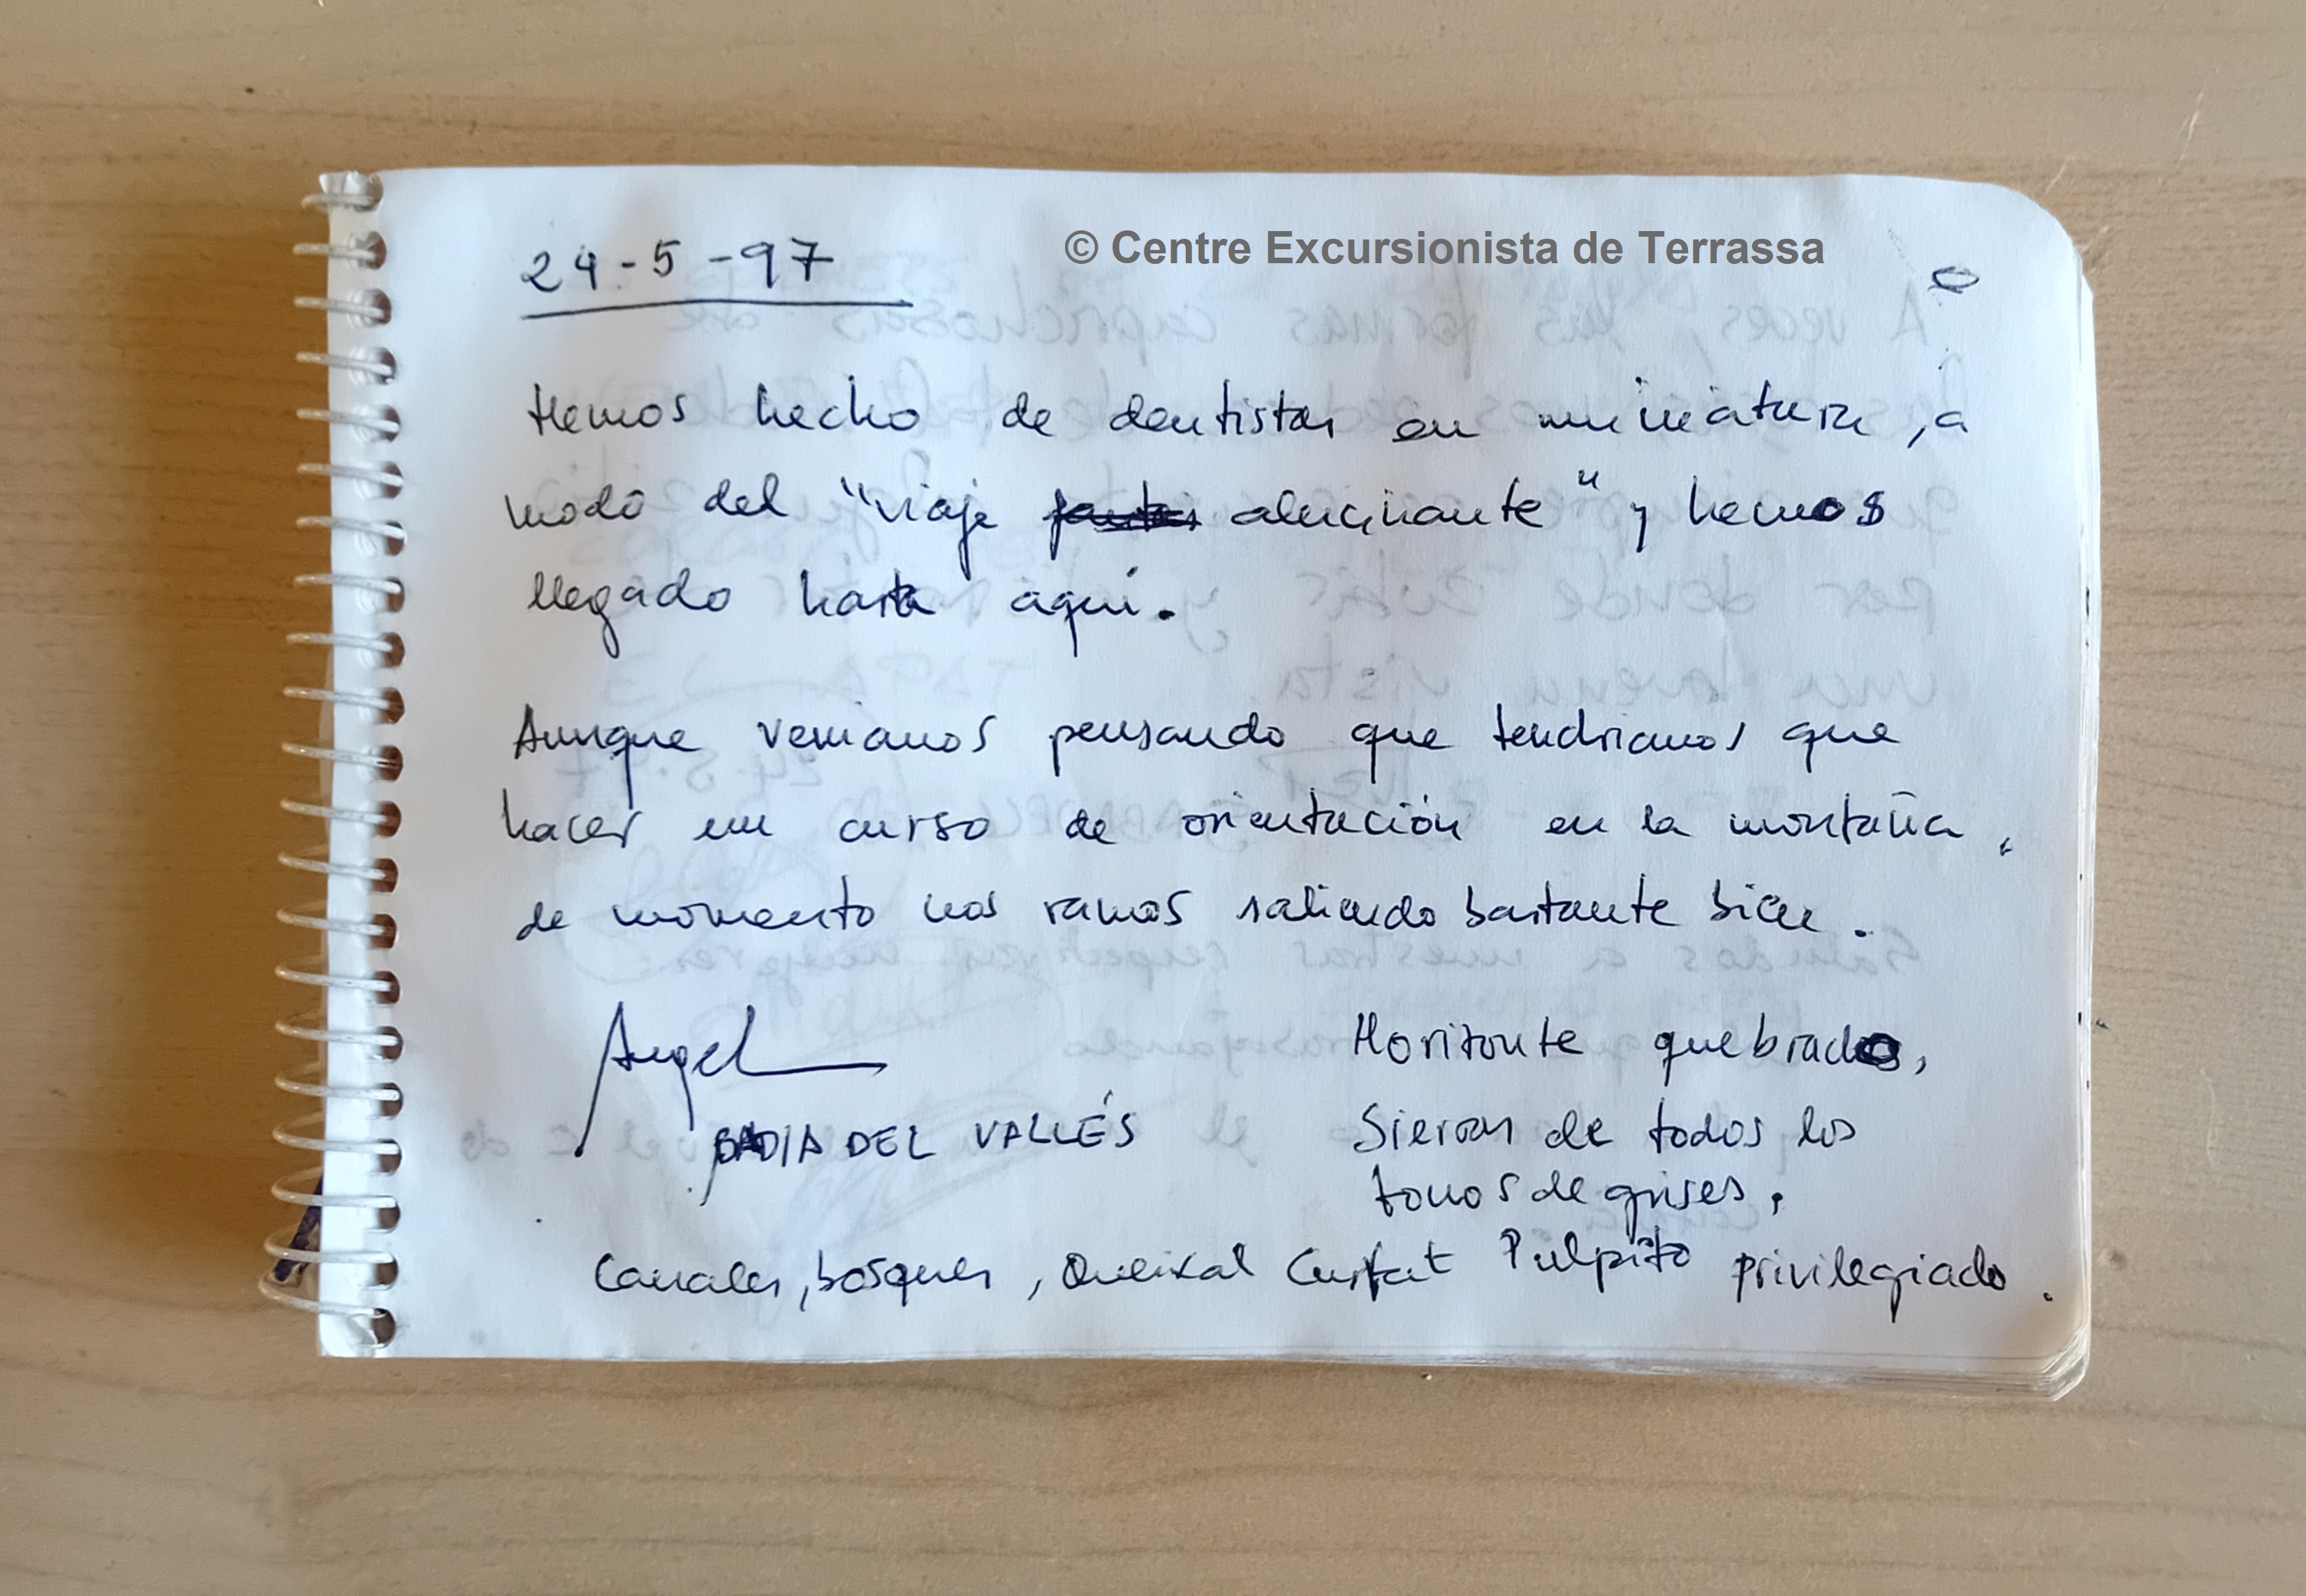 © Centre Excursionista de Terrassa
24-5-97
Hemos hecho de dentistas en miniatura, a
modo del "viaje alucinante" y hemos
llegado hasta aquí.
Aunque veniamos pensando que tendriamos que
hacer un curso de orientación en la montaña,
de momento nos vamos saliendo bastante bien.
Angel
BADIA DEL VALLÉS
Horizonte quebrado,
Sierras de todos los
tonos de grises,
Canales, bosques, Queixal Pulpito privilegiado.